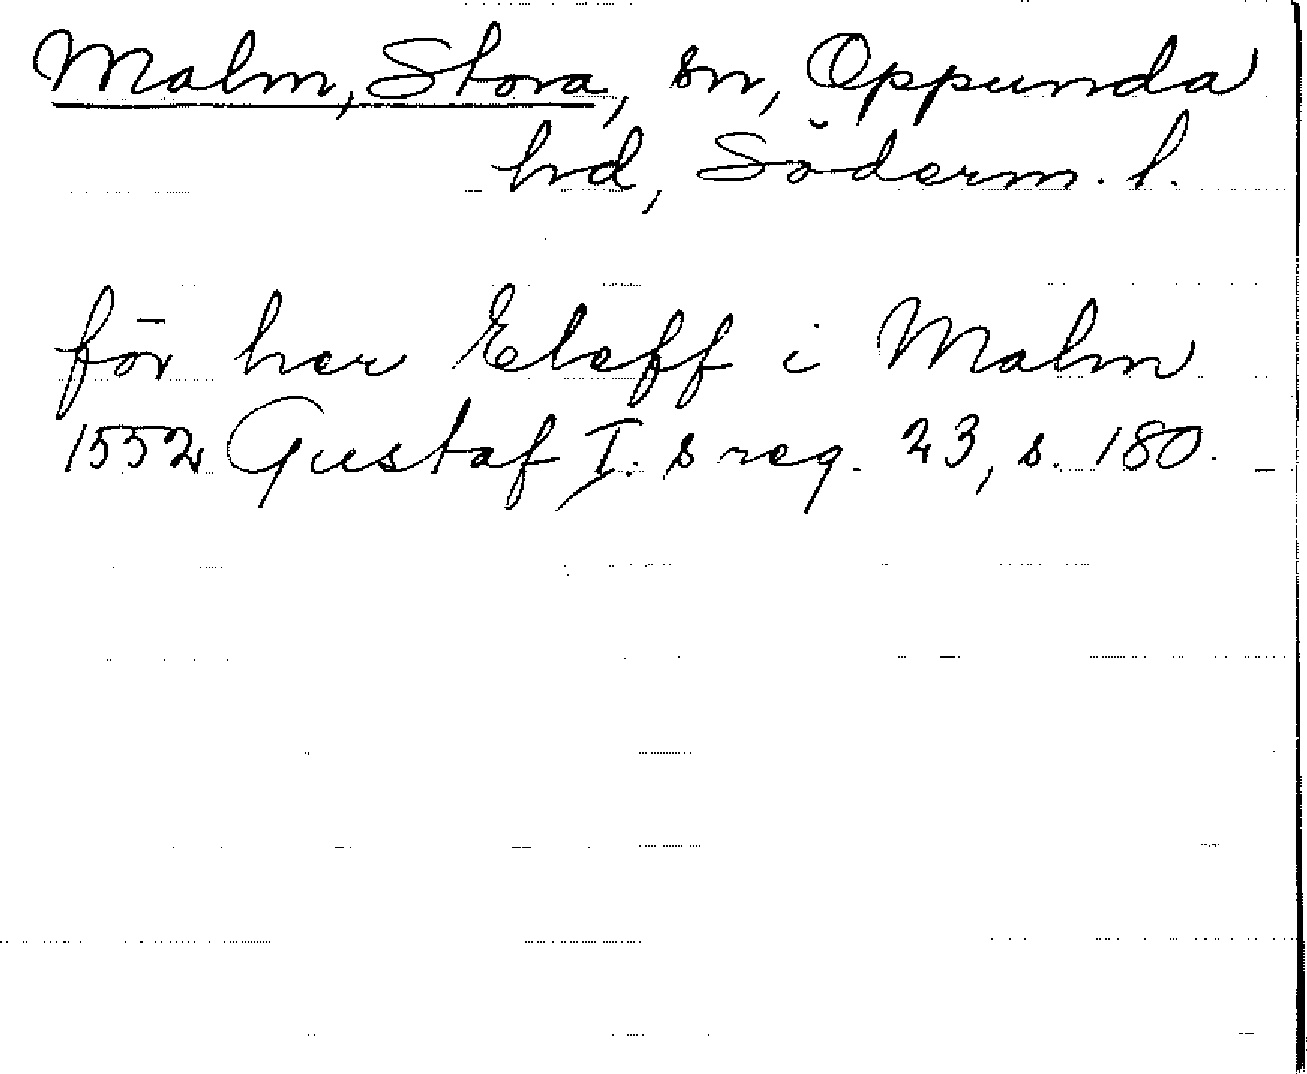 Malm, Stora, sn, Oppunda
hd, Söderm. l.
för her Eleff i Malm
1552 Gustaf I. s reg. 23, s. 180.